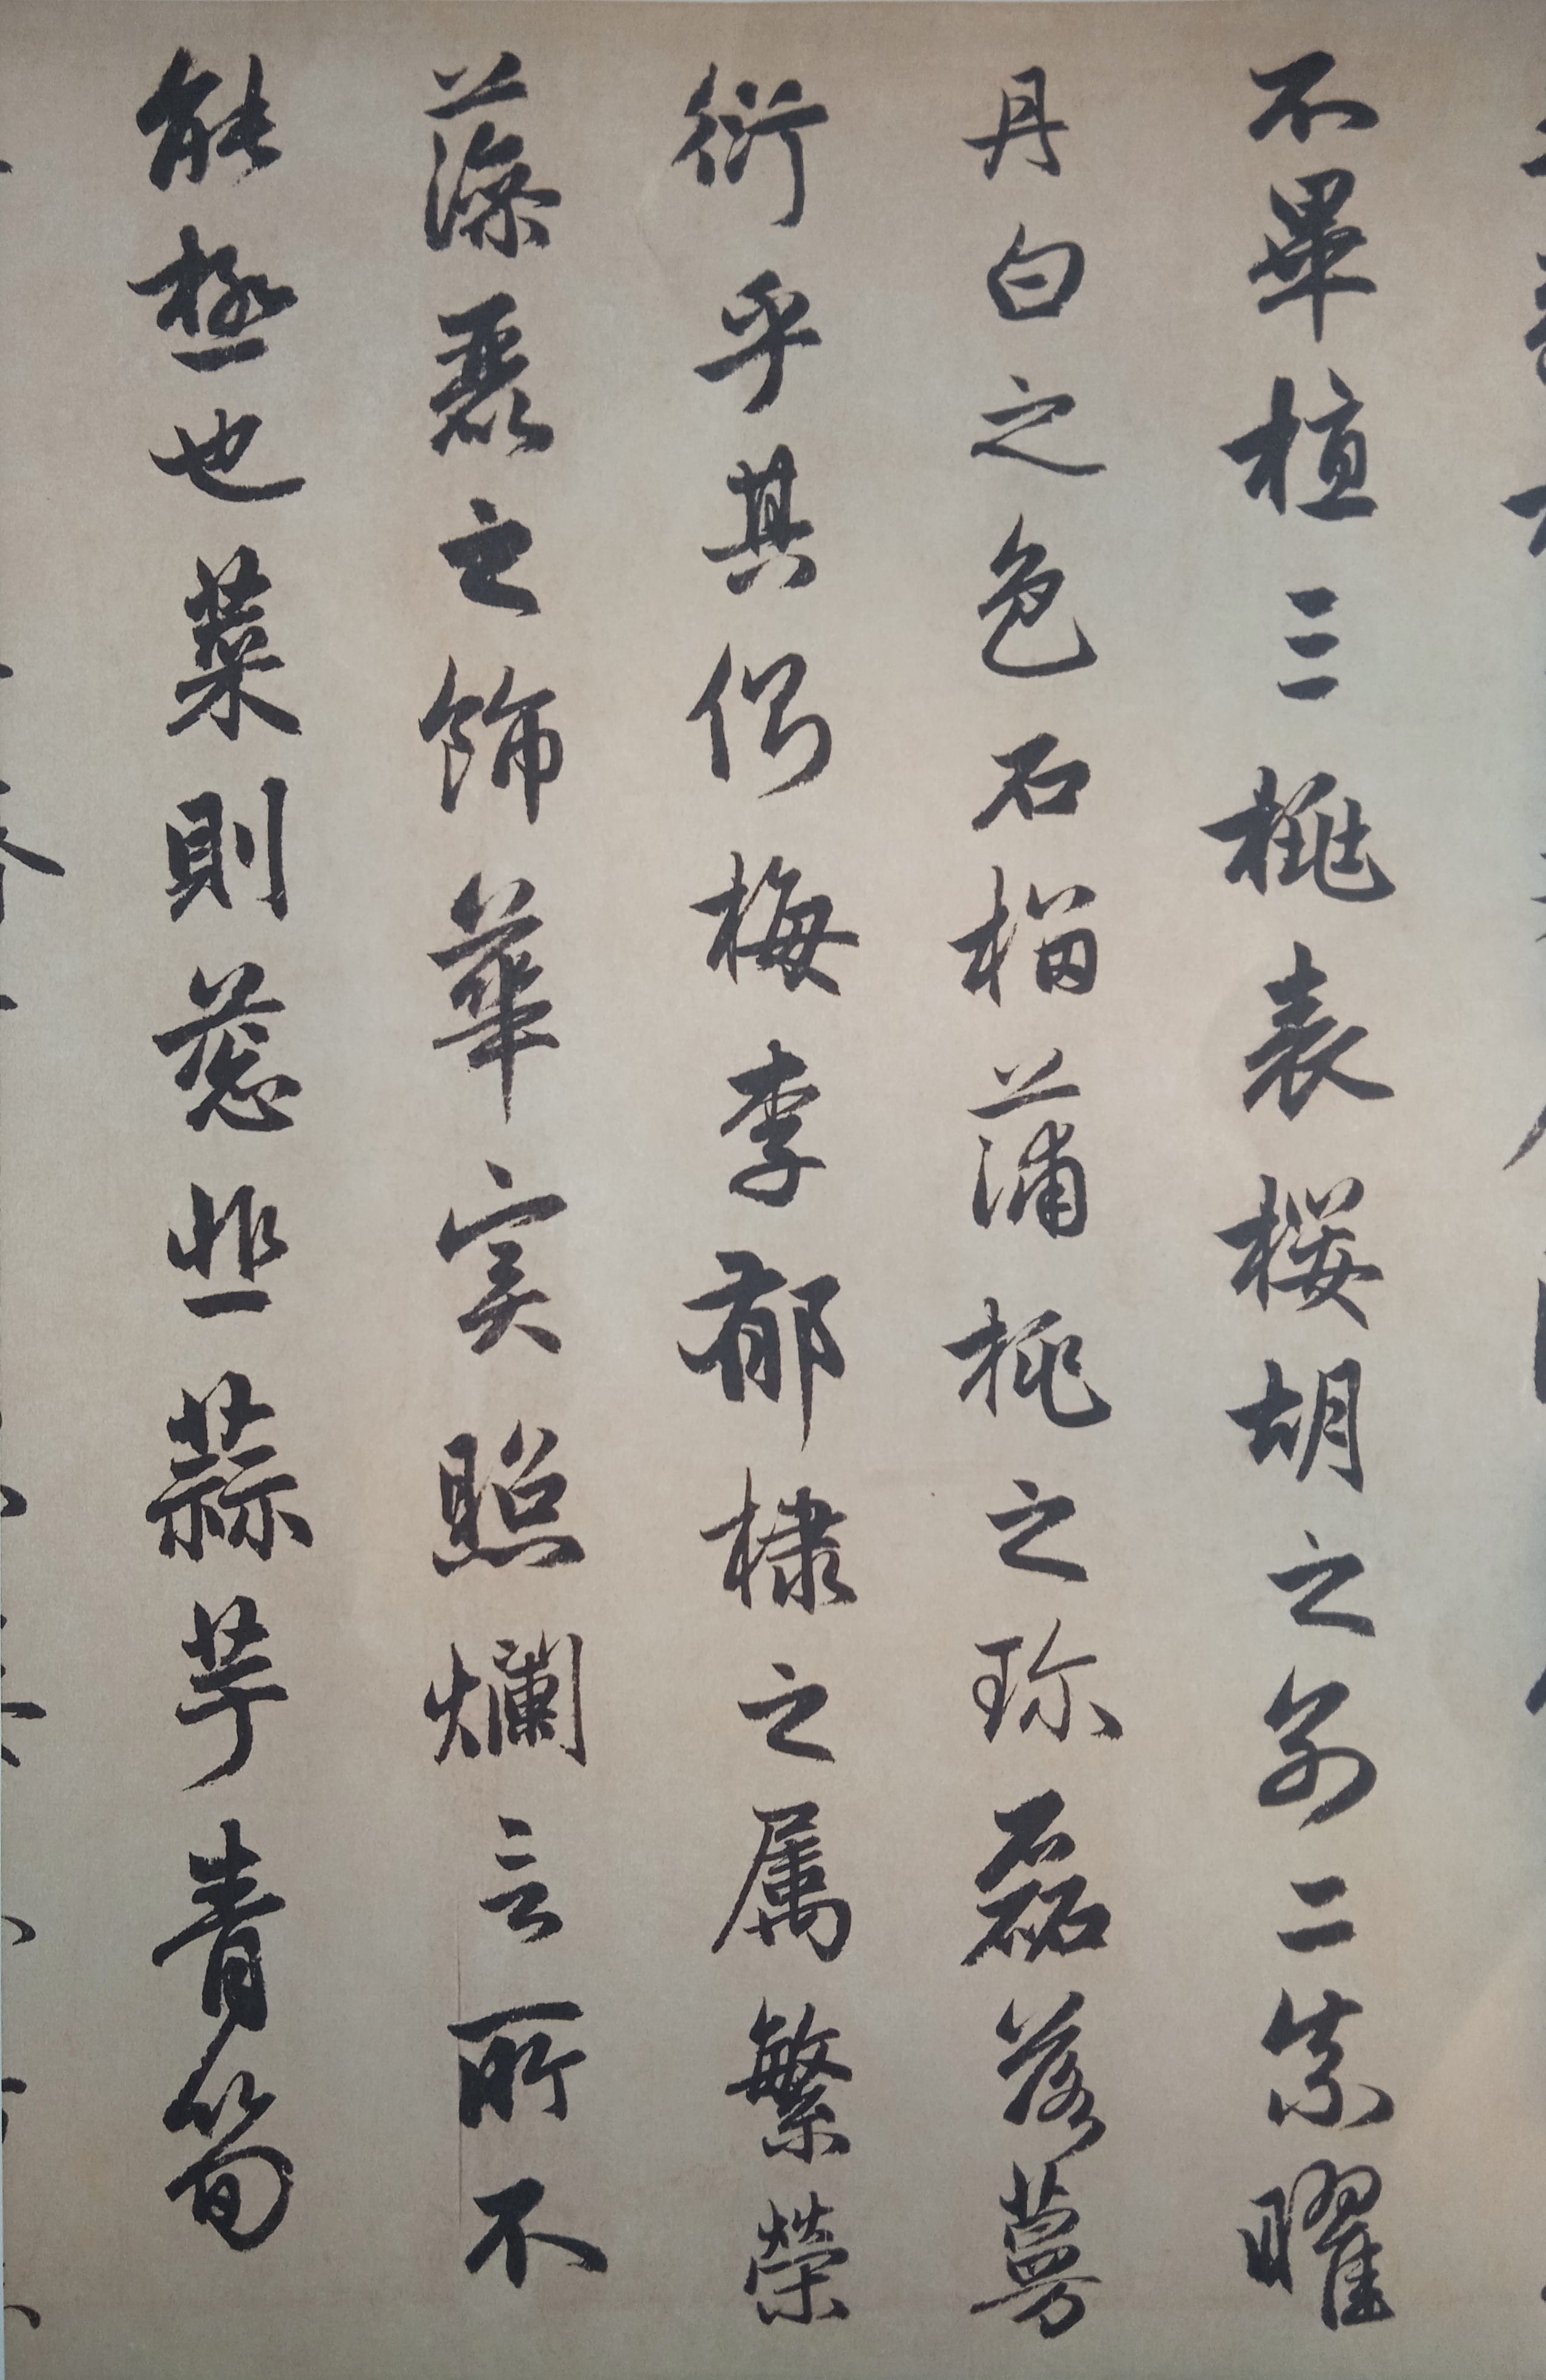 不畢植三桃表櫻胡之別二柰曜
丹白之色石榴蒲桃之珎磊落蔓
衍乎其側梅李郁棣之属繁榮
藻麗之飾華實照爛言所不
能極也菜則蔥韭蒜芋青筍